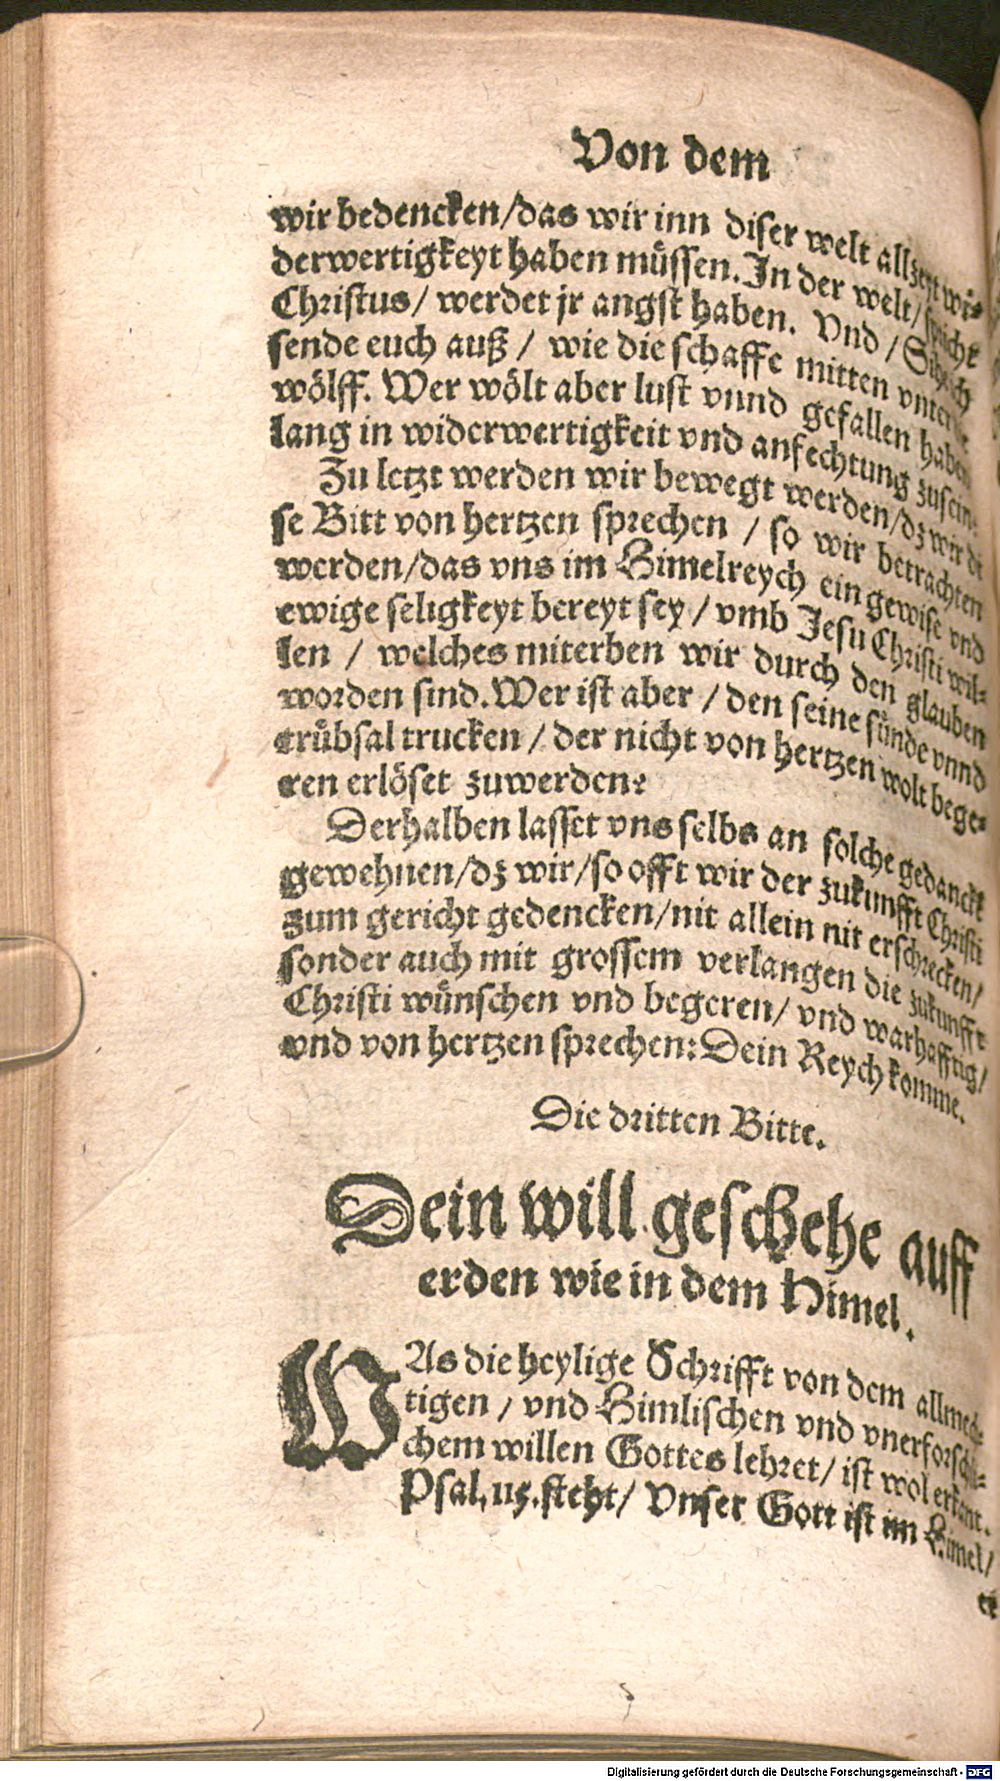 Von dem
wir bedencken/das wir inn diser welt allzeyt wi-
derwertigkeyt haben müssen. In der welt/ spricht
Christus/ werdet jr angst haben. Vnd / Sihe ich
sende euch auß / wie die schaffe mitten vnter die
wölff. Wer wölt aber lust vnnd gefallen haben
lang in widerwertigkeit vnd anfechtung zusein?
Zu letzt werden wir bewegt werden/dz wir di
se Bitt von hertzen sprechen / so wir betrachten
werden/das vns im Himelreych ein gewise vnd
ewige seligkeyt bereyt sey / vmb Jesu Christi wil-
len / welches miterben wir durch den glauben
worden sind. Wer ist aber / den seine sünde vnnd
trübsal trucken / der nicht von hertzen wolt bege-
ren erlöset zuwerden?
Derhalben lasset vns selbs an solche gedanckt
gewehnen/dz wir/so offt wir der zukunfft Christi
zum gericht gedencken/nit allein nit erschrecken/
sonder auch mit grossem verlangen die zukunfft
Christi wünschen vnd begeren/ vnd warhafftig/
vnd von hertzen sprechen: Dein Reych komme.
Die dritten Bitte.
Dein will geschehe auff
erden wie in dem Himel.
WAs die heylige Schrifft von dem allmech-
tigen / vnd Himlischen vnd vnerforschli-
chem willen Gottes lehret/ ist wol erkant.
Psal. 115. steht/ Vnser Gott ist im Himel/
er
Digitalisierung gefördert durch die Deutsche Forschungsgemeinschaft - DFG